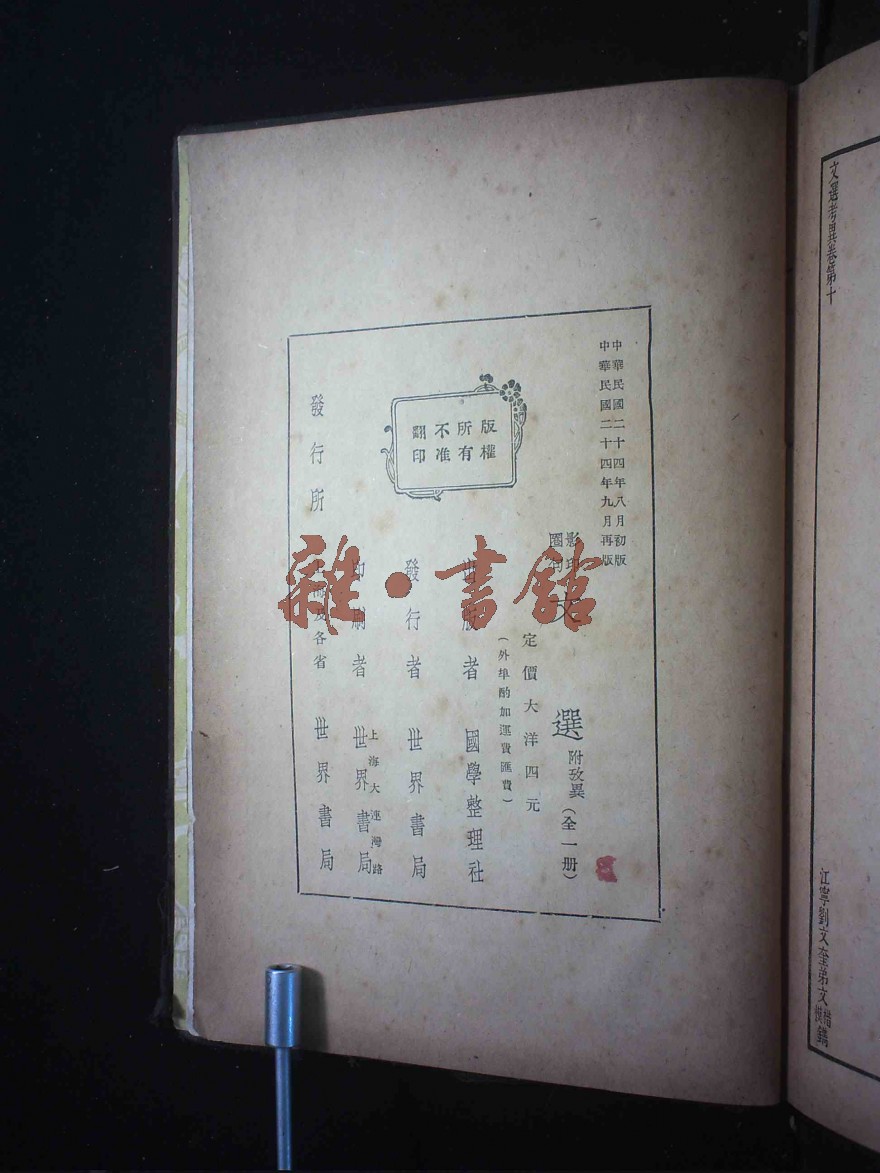 文選考異卷第十
江寧劉文奎弟文楷鐫
中華民國二十四年八月初版
中華民國二十四年九月再版
影印
圈句
文選
附攷異(全一册)
定價大洋四元
(外埠酌加運費匯費)
版權
所有
不准
翻印
出版者 國學整理社
發行者 世界書局
上海大連灣路
印刷者 世界書局
發行所 及各省 世界書局
雜·書館